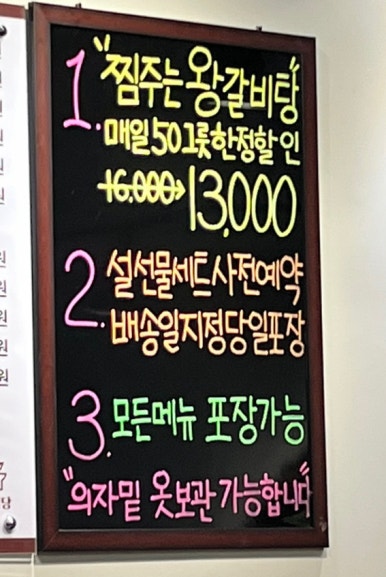 1. "찜주는 왕갈비탕"
매일 50그릇 한정할인
16.000→13,000
2. 설선물세트 사전예약
배송일지정 당일포장
3. 모든메뉴 포장가능
"의자밑 옷보관 가능합니다"
원
원
원
원
원